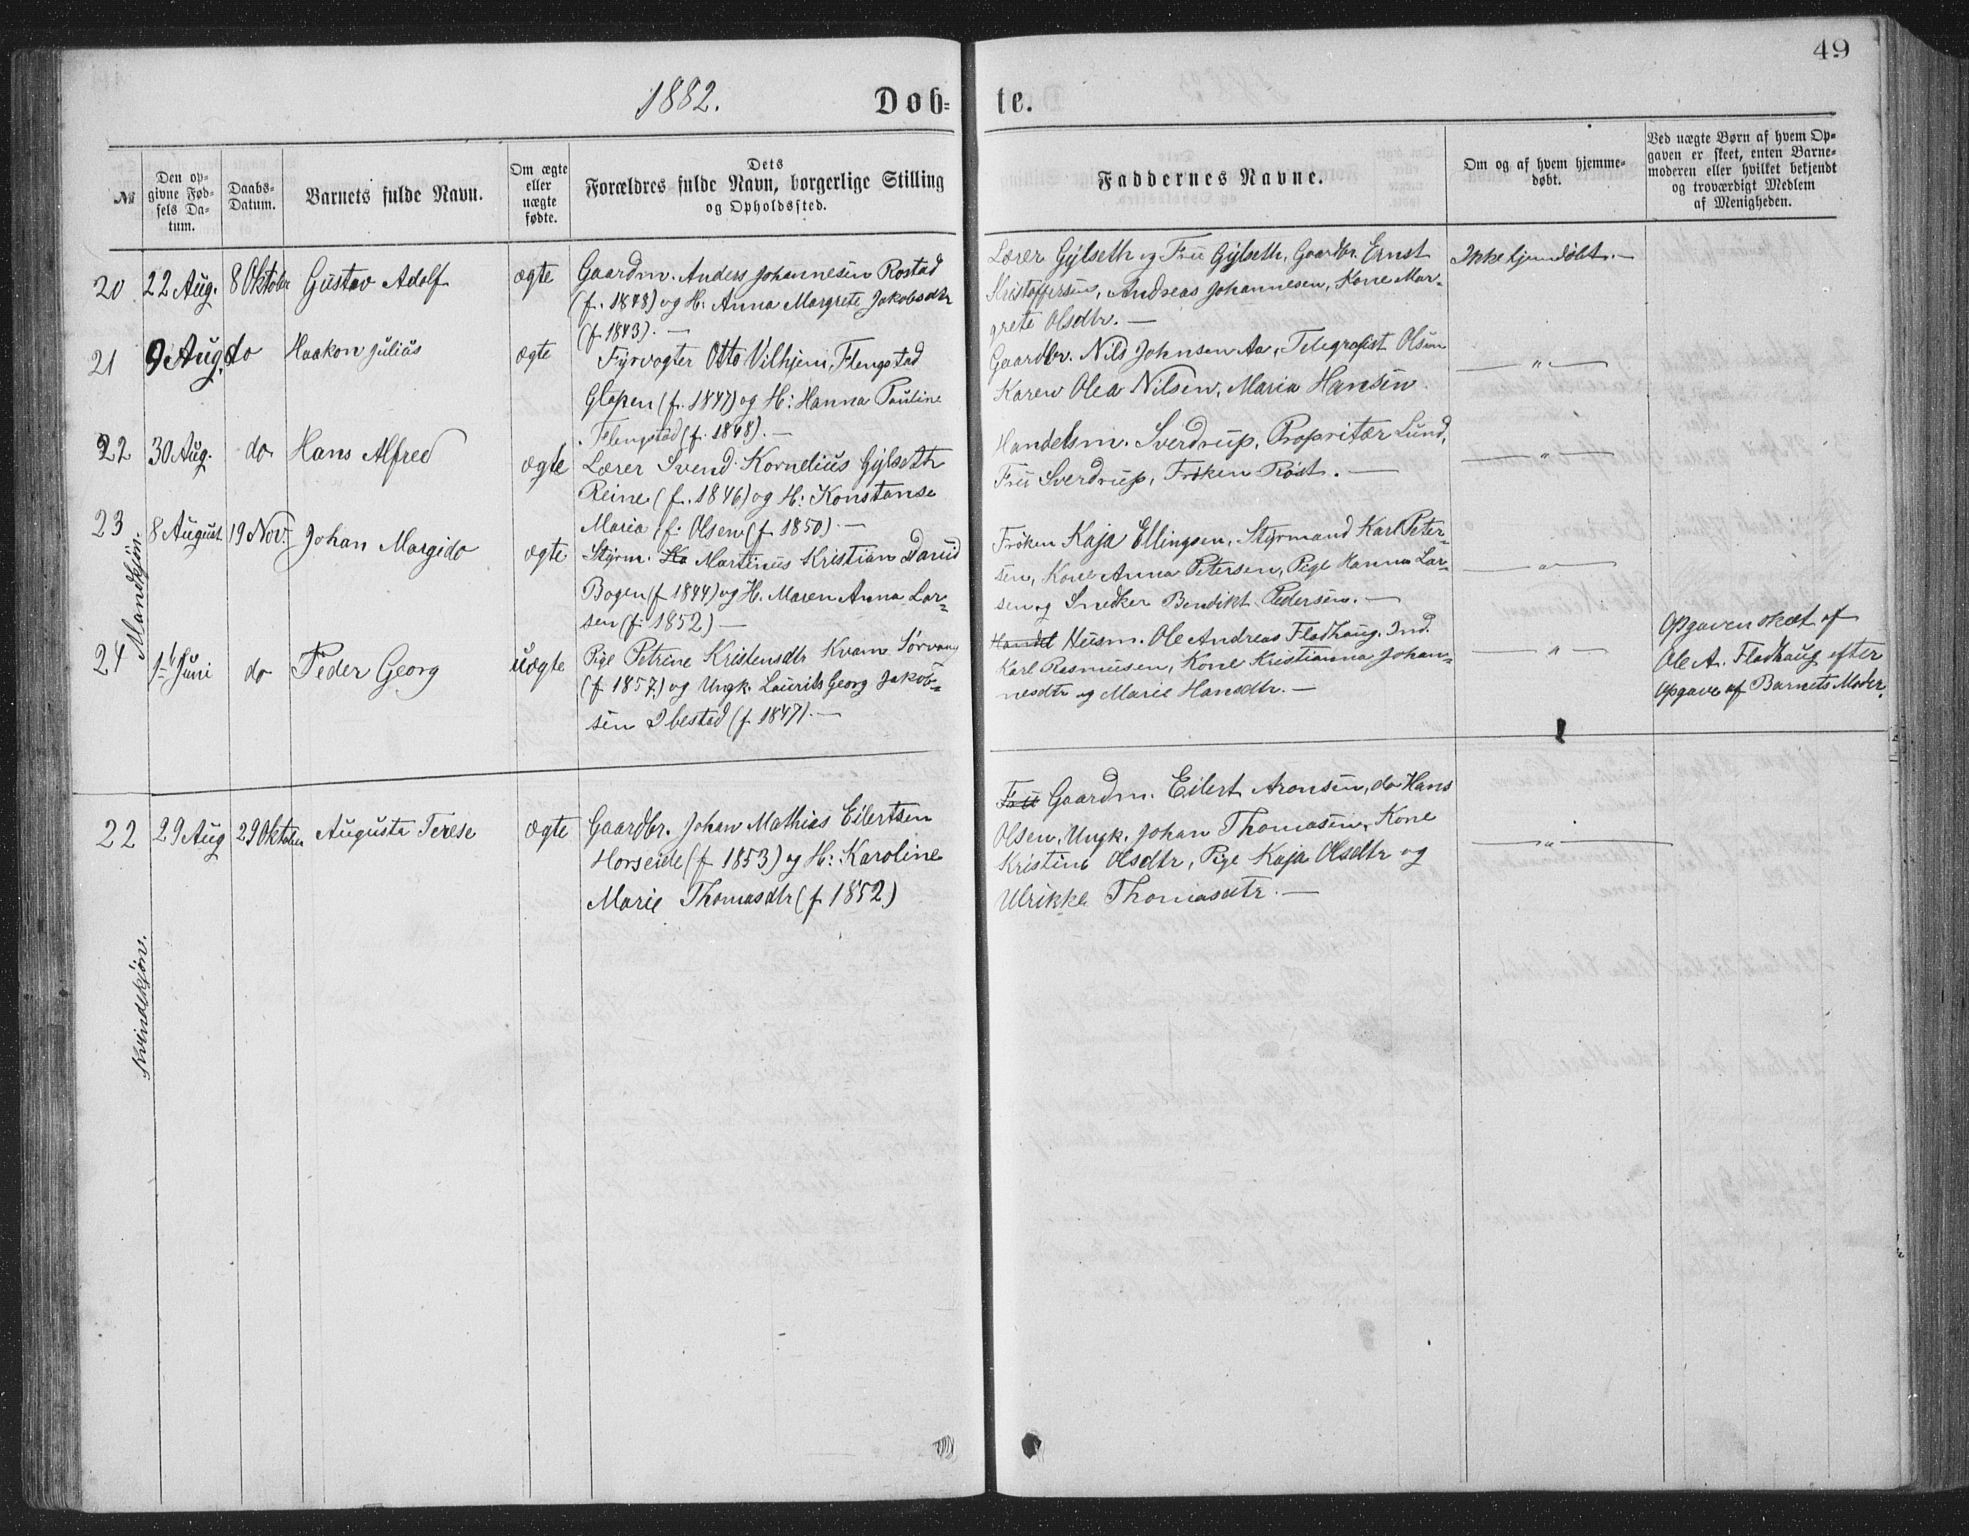 49
1882. Døb- te.
№
Den op-
givne Fød-
sels Da-
tum.
Daabs-
Datum.
Barnets fulde Navn.
Om ægte
eller
uægte
fødte.
Dets
Forældres fulde Navn, borgerlige Stilling
og Opholdssted.
Faddernes Navne.
Om og af hvem hjemme-
døbt.
Ved uægte Børn af hvem Op-
gaven er skeet, enten Barne-
moderen eller hvilket bekjendt
og troværdigt Medlem
af Menigheden.
Mandkjøn.
20 22 Aug. 8 Oktober Gustav Adolf ægte
Gaardm. Anders Johannesen Rostad
(f. 1848) og H: Anna Margrete Jakobsdtr
(f. 1843). —
Lærer Gylseth og Fru Gylseth, Gaardbr. Ernst
Kristoffersen, Andreas Johannesen, Kone Mar-
grete Olsdtr. —
Ikke hjemdøbt. —
21 9 Aug. do Haakon Julius ægte
Fyrvogter Otto Vilhjem Flengstad
Glopen (f. 1847) og H: Hanna Pauline
Flengstad (f. 1848). —
Gaardbr. Nils Johnsen Aa, Telegrafist Olsen
Karen Olea Nilsen, Maria Hansen.
— " —
22 30 Aug. do Hans Alfred ægte
Lærer Svend Kornelius Gylseth
Reine (f. 1846) og H: Konstanse
Maria f. Olsen (f. 1850) —
Handelsm. Sverdrup, Propritær Lund,
Fru Sverdrup, Frøken Røst. —
— " —
23 8 August 19 Nov. Johan Margido ægte
Styrm. Ka Martinus Kristian David
Bogen (f. 1844) og H. Maren Anna Lar-
sen (f. 1852) —
Frøken Kaja Ellingsen, Styrmand Karl Peter-
sen, Kone Anna Petersen, Pige Hanna Lar-
sen og Snedker Bendikt Pedersen. —
— " —
24 1ste Juni do Peder Georg uægte
Pige Petrine Kristensdtr Kvam Sørvaag
(f. 1857) og Ungk. Laurits Georg Jakob-
sen Ibestad (f. 1847). —
Handel Husm. Ole Andreas Fladhaug, Ind.
Karl Rasmusen, Kone Kristianna Johan-
nesdtr og Marie Hansdtr. —
— " —
Opgaven skæt af
Ole A. Fladhaug efter
Opgave af Barnets Moder.
Kvindekjøn.
22 29 Aug 29 Oktober Augusta Terese ægte
Gaardbr. Johan Mathias Eilertsen
Horseide (f. 1853) og H: Karoline
Marie Thomasdtr (f. 1852)
Fru Gaardm. Eilert Aronsen, do Hans
Olsen, Ungk. Johan Thomasen, Kone
Kristine Olsdtr, Pige Kaja Olsdtr og
Ulrikke Thomasdtr. —
— " —